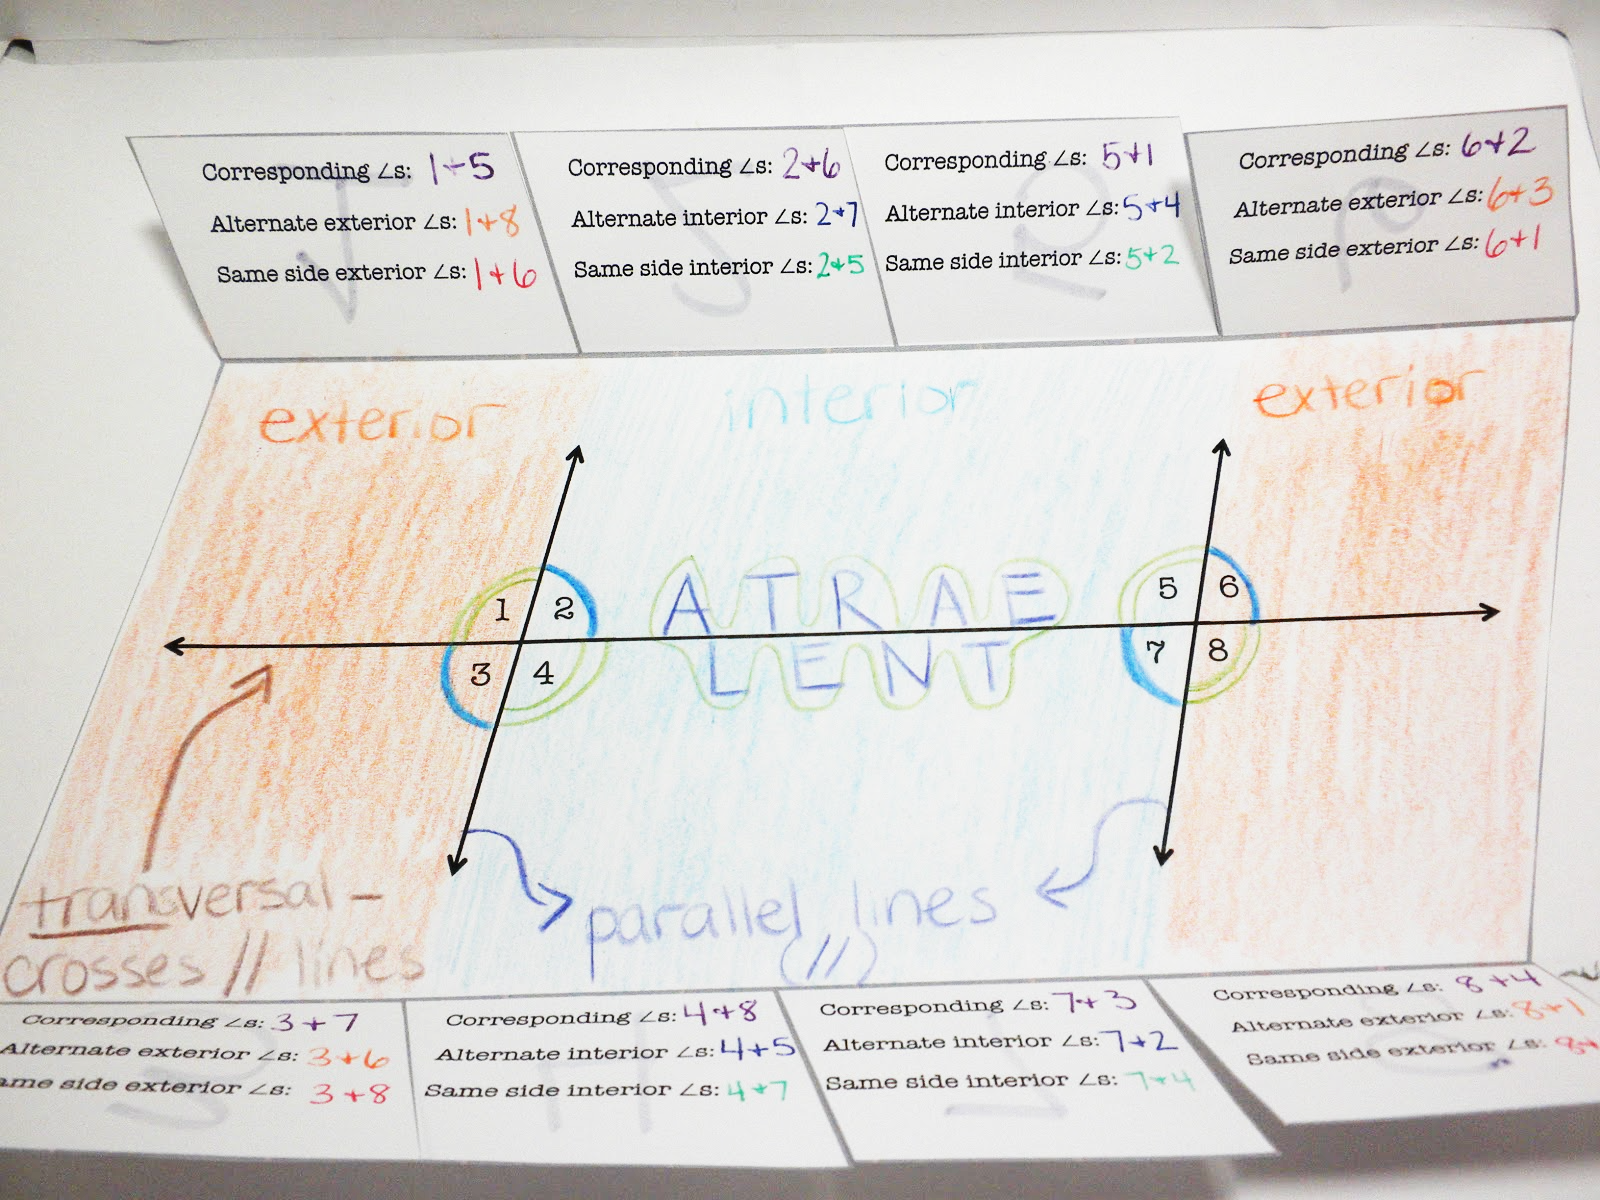 Corresponding ∠s: 1+5
Alternate exterior ∠s: 1+8
Same side exterior ∠s: 1+6
Corresponding ∠s: 2+6
Alternate interior ∠s: 2+7
Same side interior ∠s: 2+5
Corresponding ∠s: 5+1
Alternate interior ∠s: 5+4
Same side interior ∠s: 5+2
Corresponding ∠s: 6+2
Alternate exterior ∠s: 6+3
Same side exterior ∠s: 6+1
exterior interior exterior
1 2
3 4
A T R A E
L E N T
5 6
7 8
transversal -
crosses // lines
parallel lines
(//)
Corresponding ∠s: 3+7
Alternate exterior ∠s: 3+6
ame side exterior ∠s: 3+8
Corresponding ∠s: 4+8
Alternate interior ∠s: 4+5
Same side interior ∠s: 4+7
Corresponding ∠s: 7+3
Alternate interior ∠s: 7+2
Same side interior ∠s: 7+4
Corresponding ∠s: 8+4
Alternate exterior ∠s: 8+1
Same side exterior ∠s: 8+